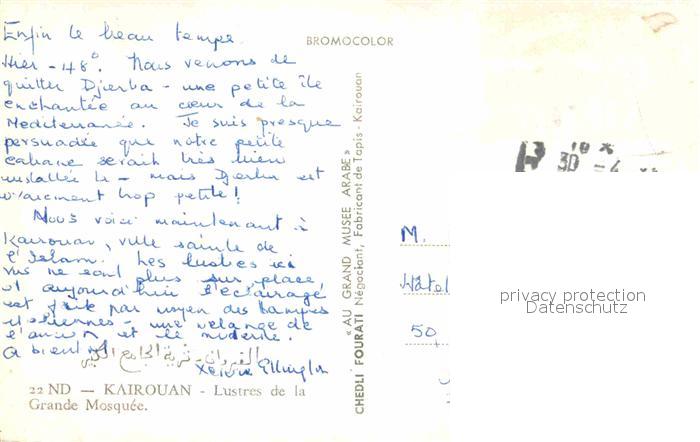 Enfin le beau temps.
Hier - 48°. Nous venons de
quitter Djerba - une petite île
enchantée au cœur de la
Mediterranée. Je suis presque
persuadée que notre petite
cabane serait très bien
installée là - mais Djerba est
vraiment trop petite!
Nous voici maintenant à
Kairouan, ville sainte de
l'Islam. Les lustres ici
vus ne sont plus sur place,
et aujourd'hui l'éclairage
est fait par moyen des lampes
- une melange de
l'ancien et le moderne.
A bientôt
Ellington
القيروان - ثرية الجامع الكبير
22 ND — KAIROUAN - Lustres de la
Grande Mosquée.
BROMOCOLOR
«AU GRAND MUSEE ARABE»
CHEDLI FOURATI Négociant, Fabricant de Tapis - Kairouan
30 - 4
M.
Hôtel
50,
privacy protection
Datenschutz